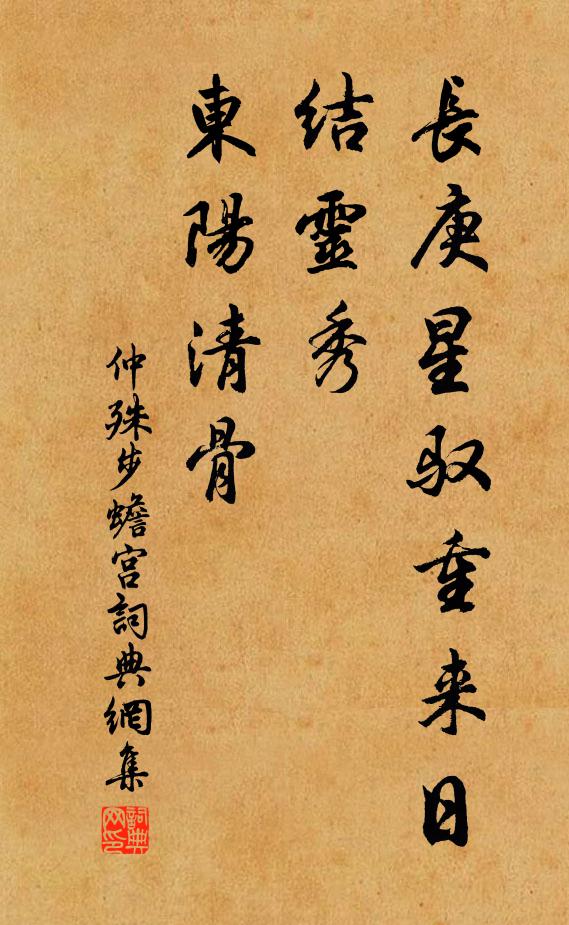 長庚星馭重来日
結靈秀
東陽清骨
仲殊步蟾宮詞典網集
詞典网印